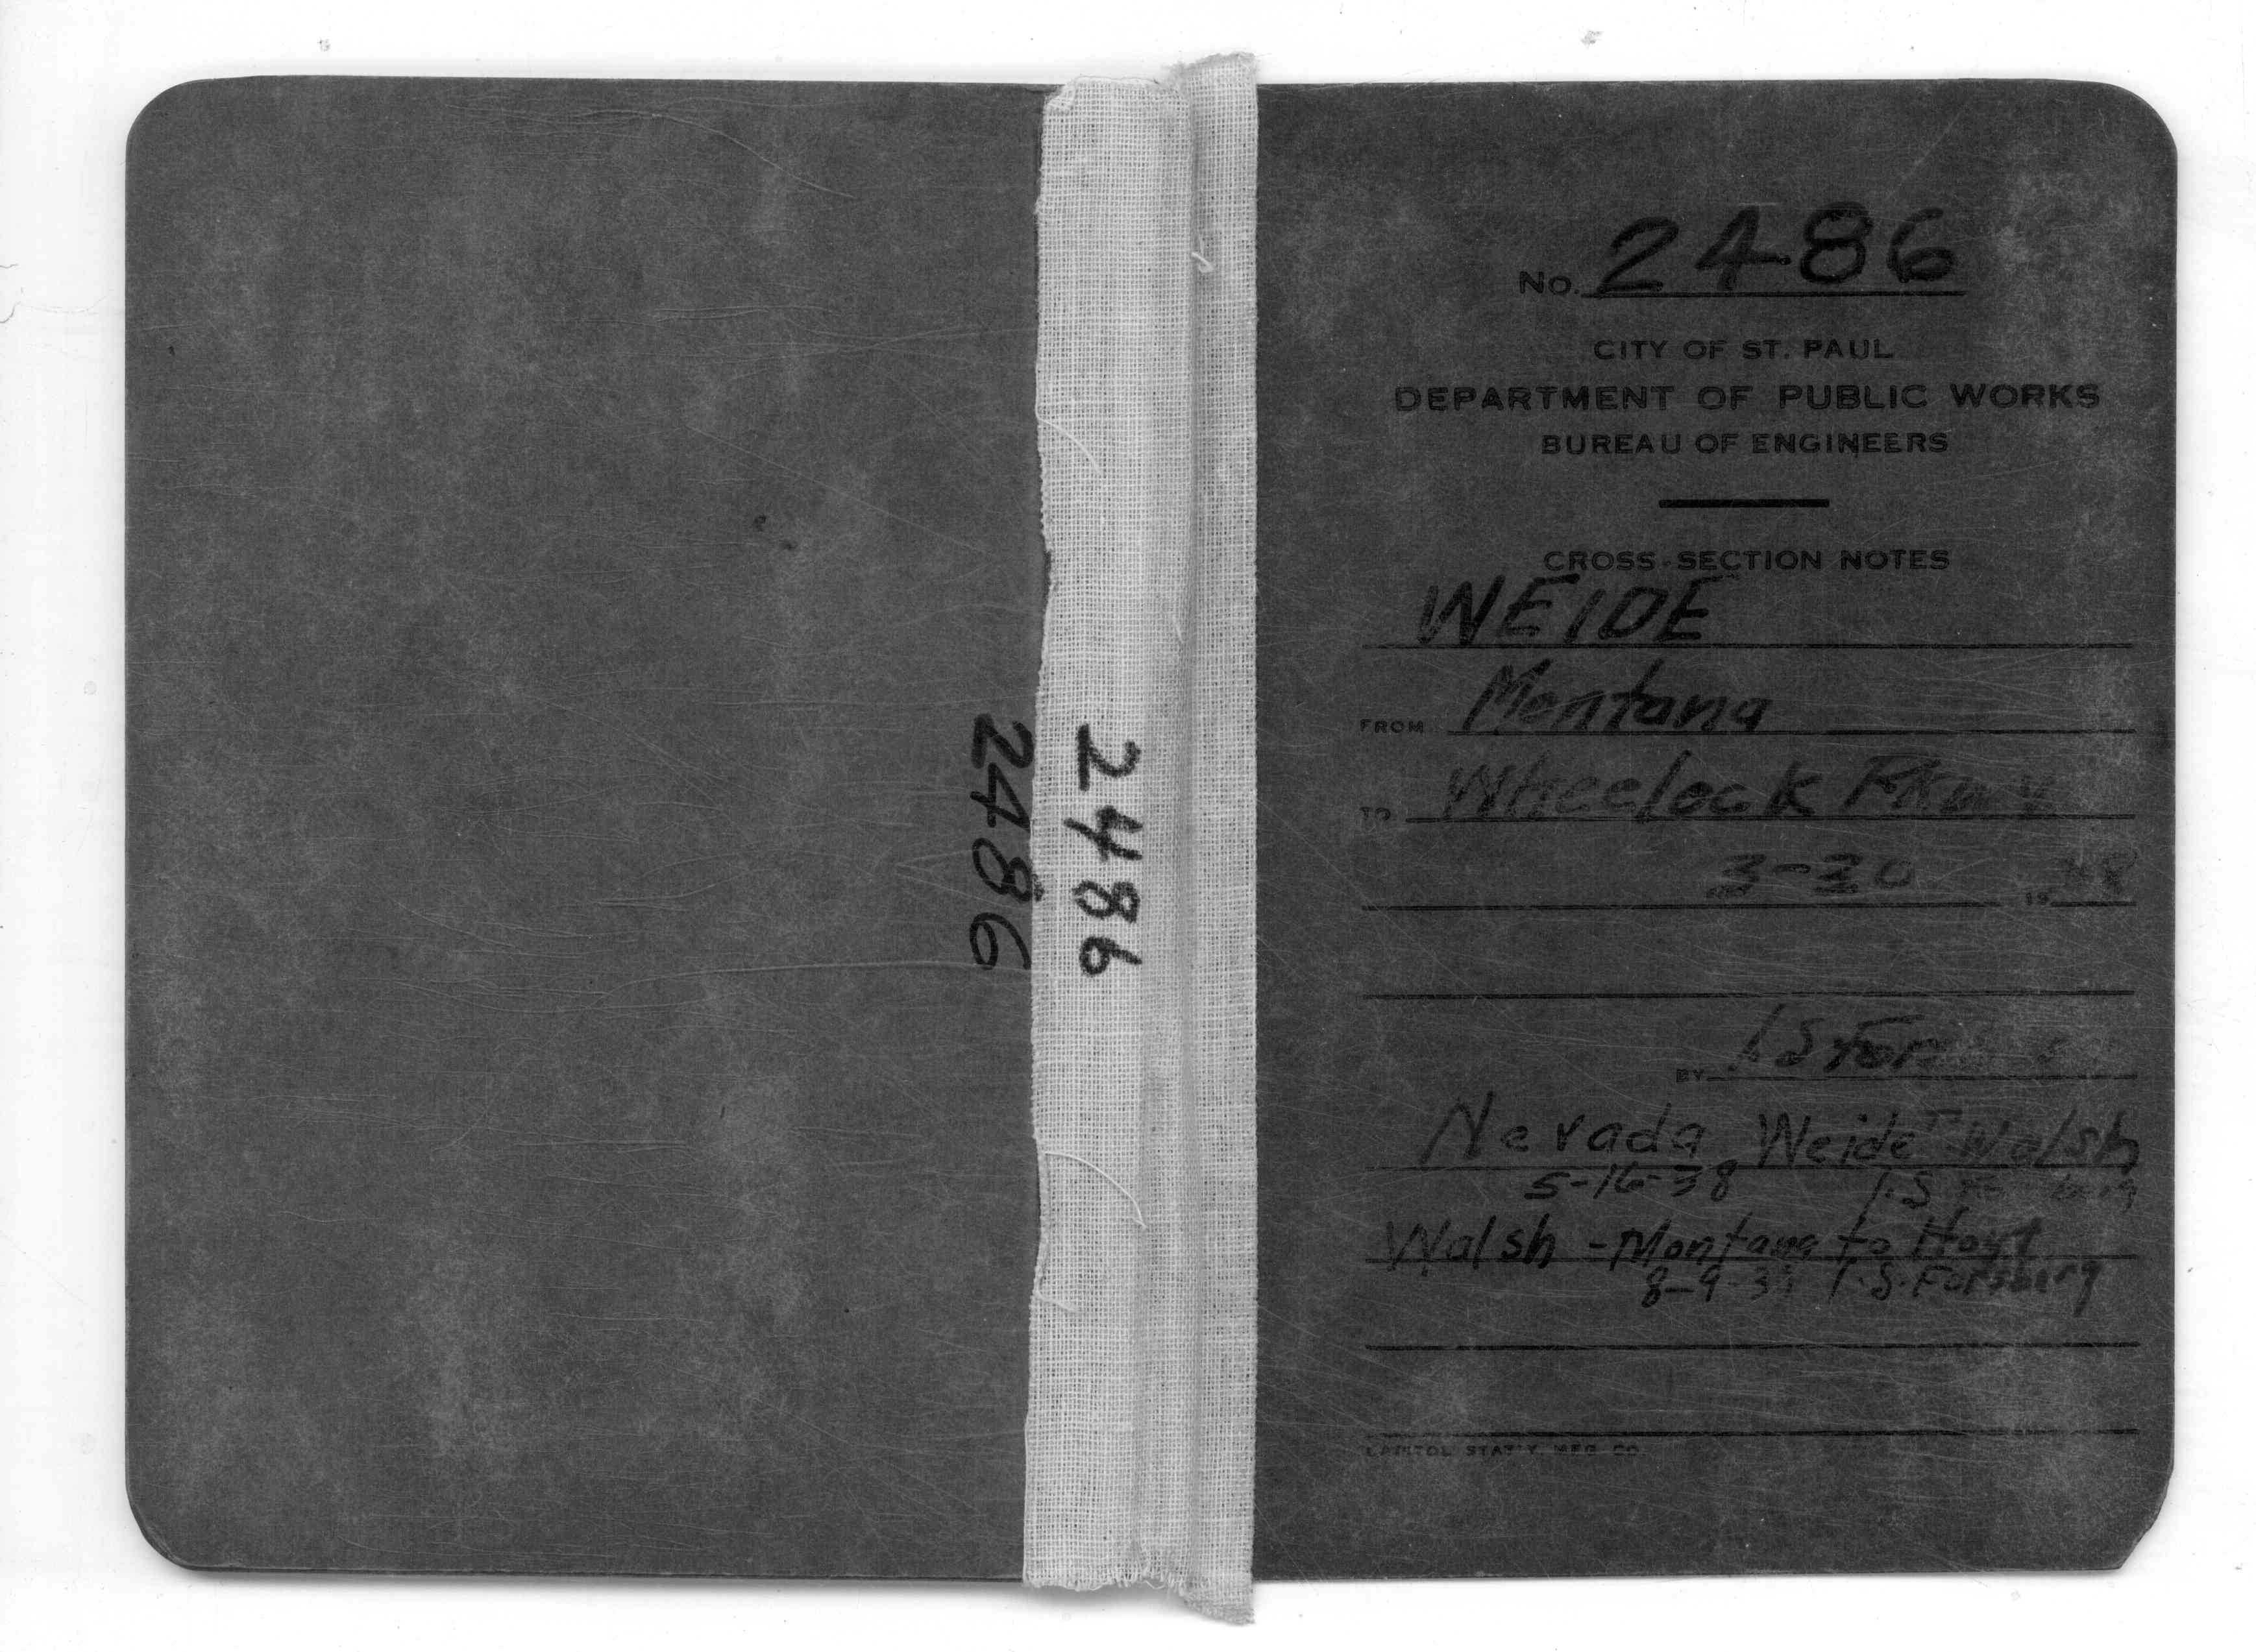 2486
2486
No. 2486
CITY OF ST. PAUL
DEPARTMENT OF PUBLIC WORKS
BUREAU OF ENGINEERS
CROSS-SECTION NOTES
WEIDE
FROM Montana
TO Wheelock Pkwy
3-30 19
BY I.S.
Nevada Weide - Walsh
5-16-38 I.S.
Walsh - Montana to Hoyt
8-9- I.S. Forsberg
CAPITOL STAT'Y. MFG. CO.